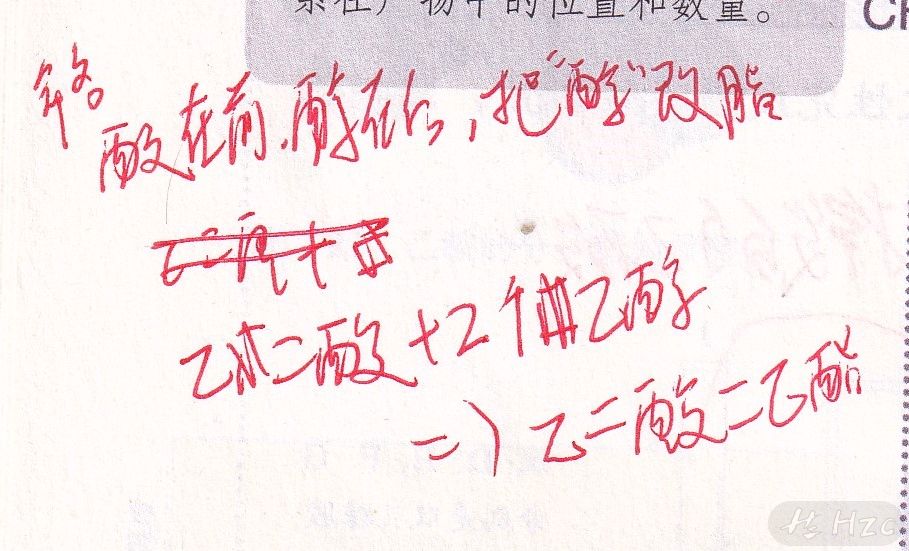 素在产物中的位置和数量。
酸在前,醇在后,把“醇”改脂
乙二酸+2个乙醇
=) 乙二酸二乙酯
HZC